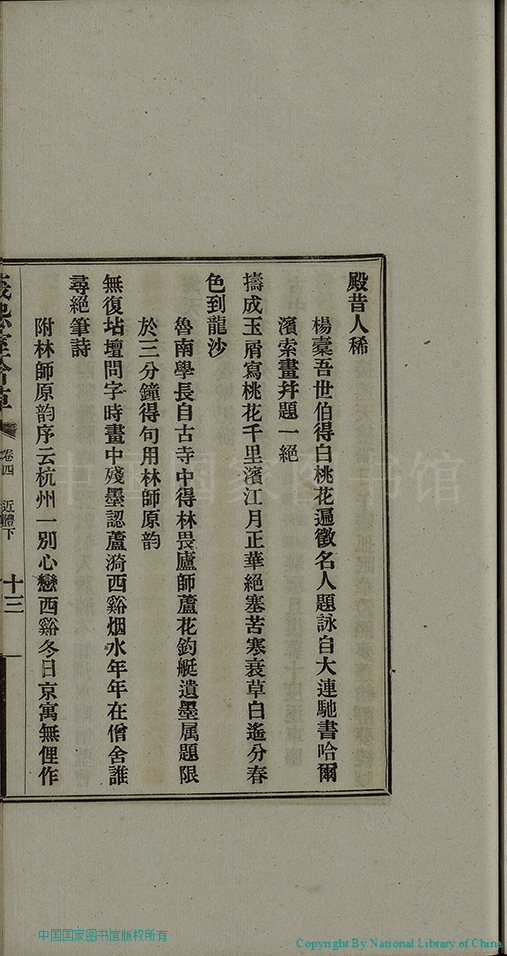 殿昔人稀
楊槖吾世伯得白桃花遍徵名人題詠自大連馳書哈爾
濱索畫幷題一絕
擣成玉屑寫桃花千里濱江月正華絕塞苦寒衰草白遙分春
色到龍沙
魯南學長自古寺中得林畏廬師蘆花釣艇遺墨属題限
於三分鐘得句用林師原韵
無復坫壇問字時畫中殘墨認蘆漪西谿烟水年年在僧舍誰
尋絕筆詩
附林師原韵序云杭州一別心戀西谿冬日京寓無俚作
卷四 近體下 十三
中国国家图书馆
中国国家图书馆版权所有
Copyright By National Library of China